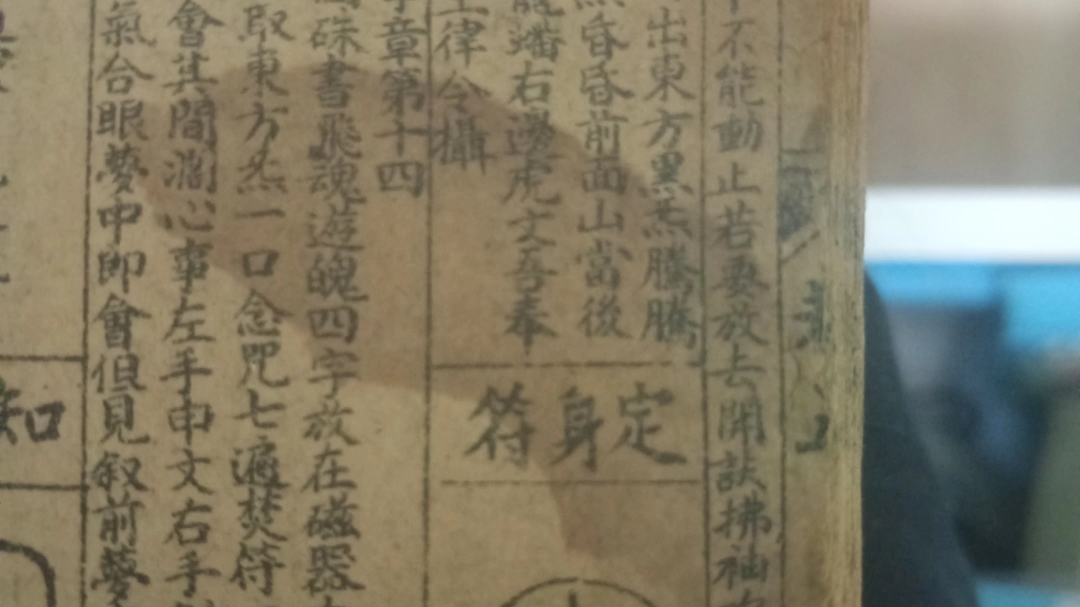 不能動止若要放去開訣拂袖
出東方黑炁騰騰
昏昏前面山當後
龍蟠右邊虎丈吾奉
律令攝
定身符
章第十四
硃書飛魂遊魄四字放在磁器
取東方炁一口念咒七遍焚符
會其間滴心事左手申文右手
氣合眼夢中即會但見叙前夢
知